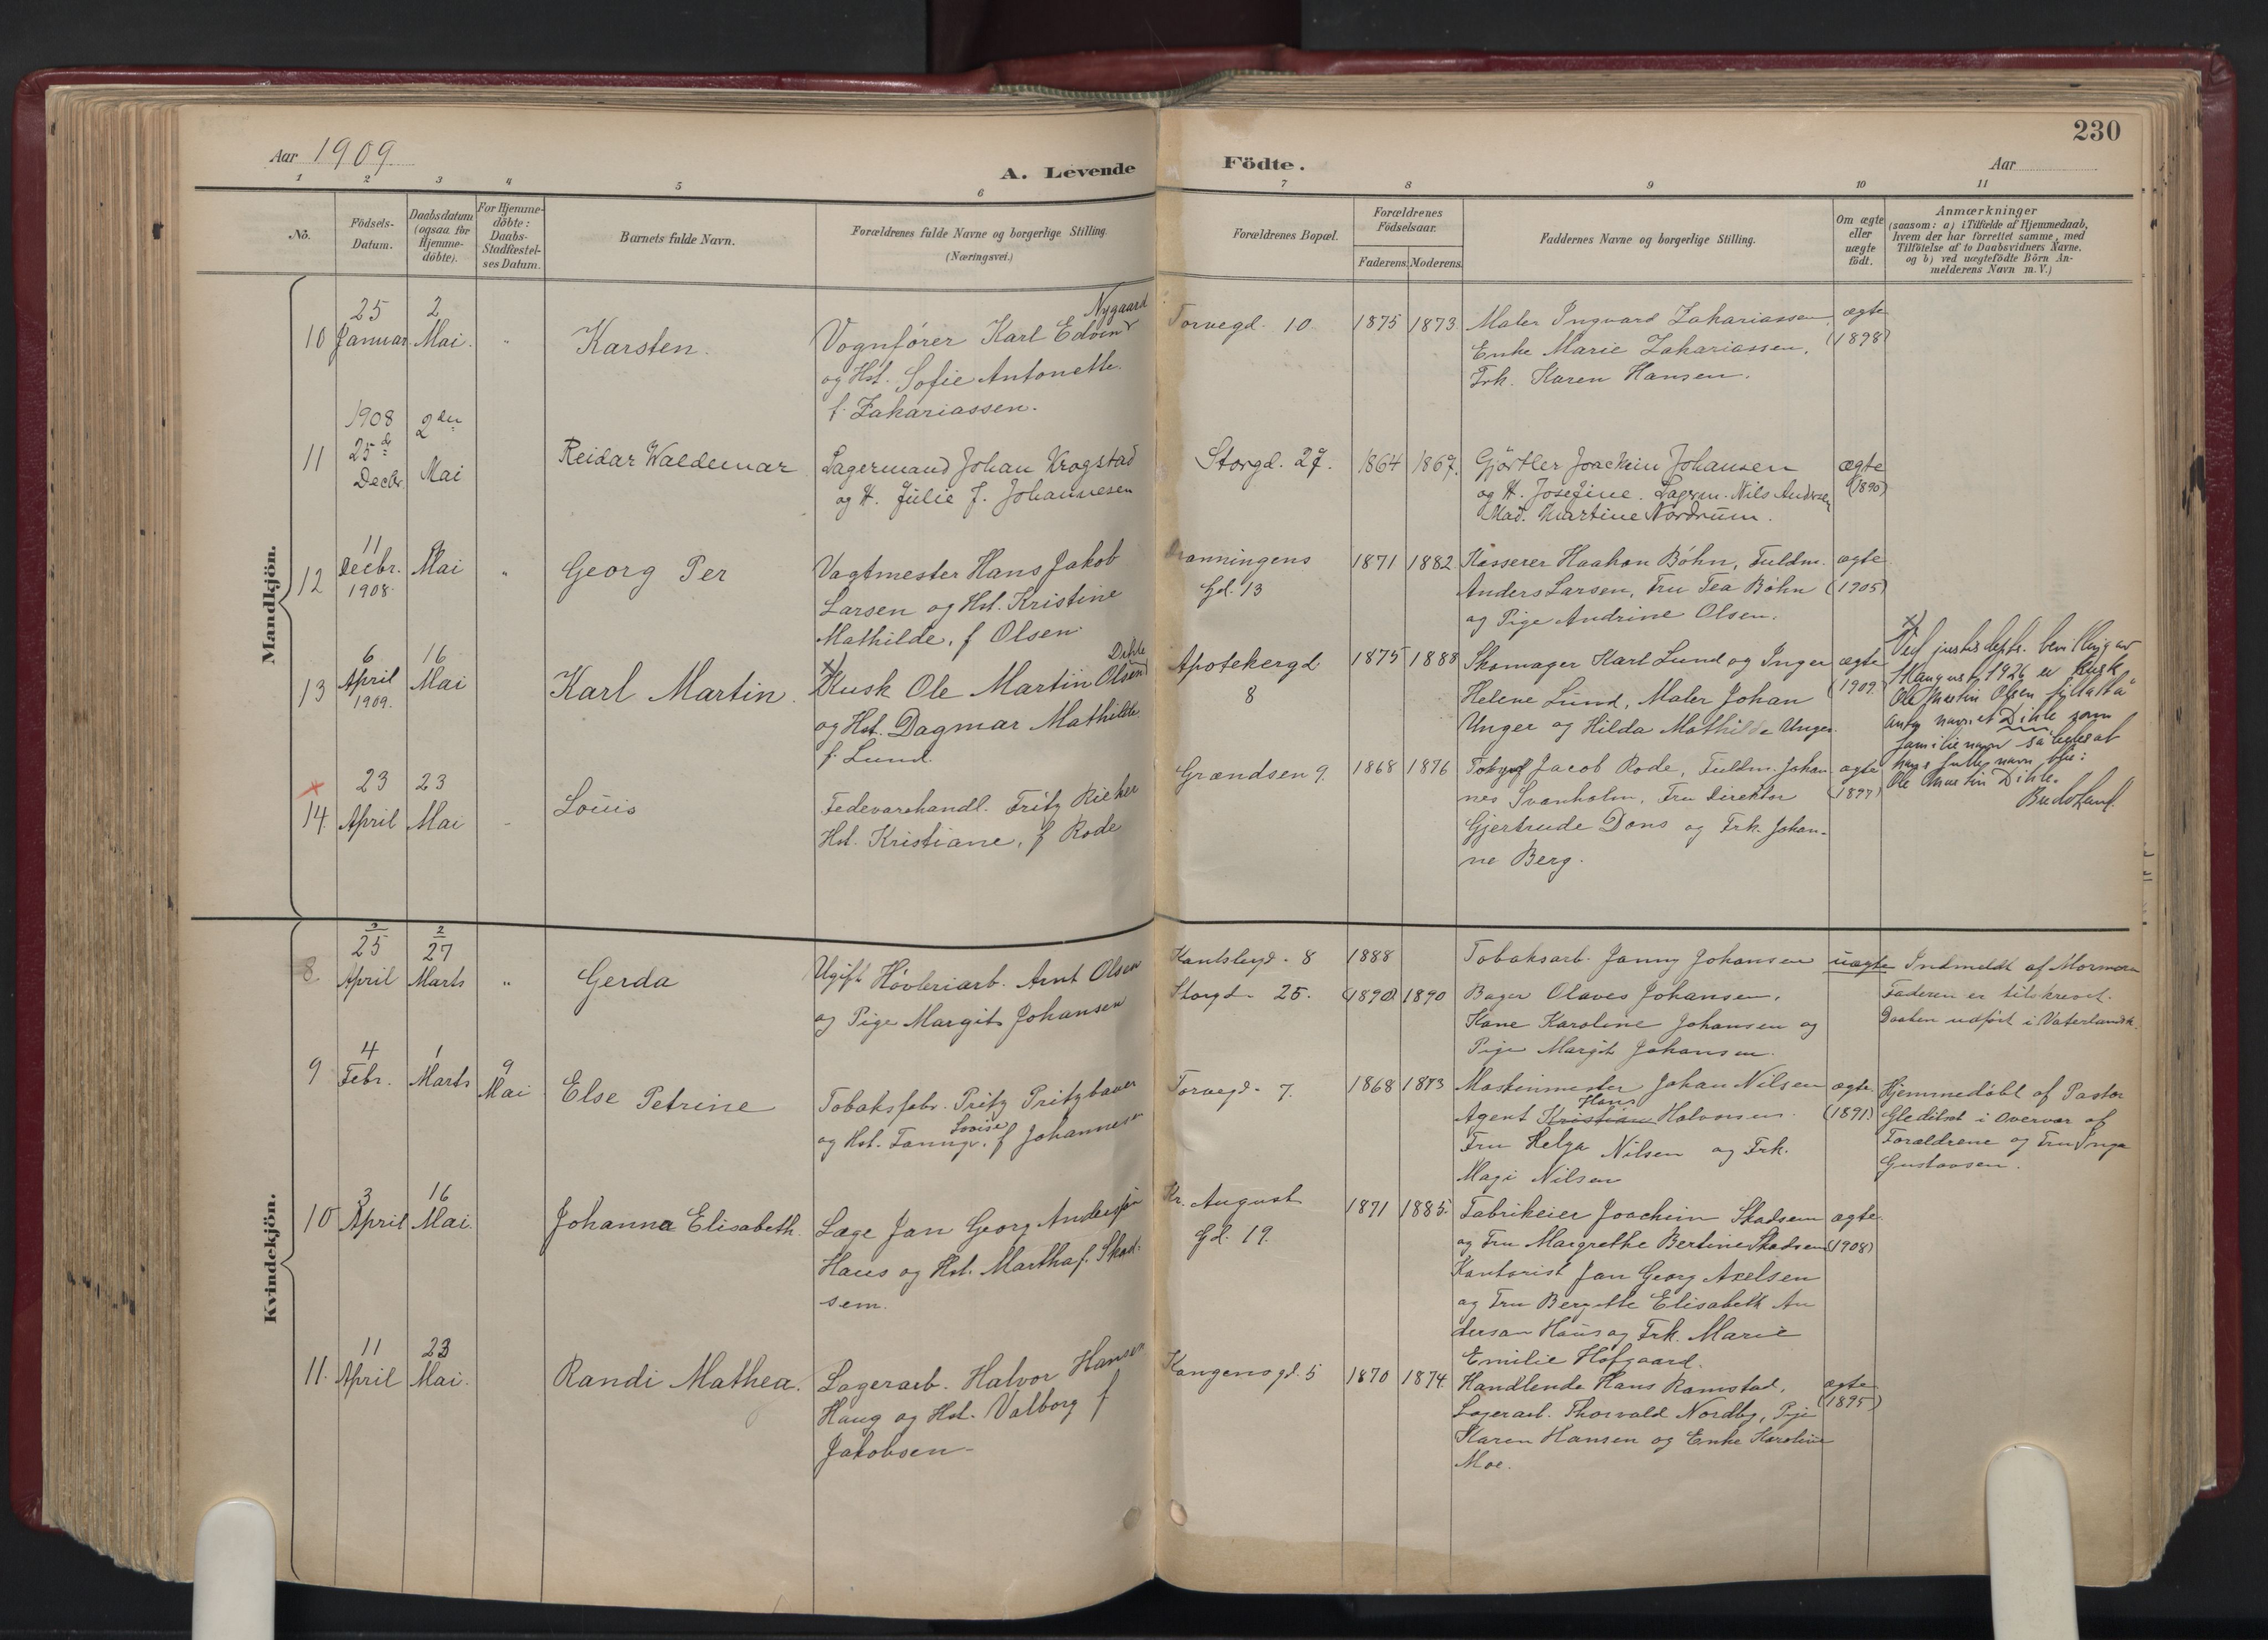 Aar 1909
A. Levende Födte.
Aar
230
1 2 3 4 5 6 7 8 9 10 11
No.
Födsels-
Datum.
Daabsdatum
(ogsaa for
Hjemme-
döbte).
For Hjemme-
döbte:
Daabs-
Stadfæstel-
ses Datum.
Barnets fulde Navn.
Forældrenes fulde Navne og borgerlige Stilling.
(Næringsvei.)
Forældrenes Bopæl.
Forældrenes
Födselsaar.
Faderens. Moderens.
Faddernes Navne og borgerlige Stilling.
Om ægte
eller
uægte
födt.
Anmærkninger
(saasom: a) i Tilfælde af Hjemmedaab,
hvem der har forrettet samme, med
Tilföielse af to Daabsvidners Navne.
og b) ved uægtefödte Börn An-
melderens Navn m. V.)
Mandkjön.
10
25
Januar
2
Mai.
"
Karsten.
Nygaard
Vognfører Karl Edvin
og Hst. Sofie Antonette
f. Zakariassen.
Torvegd. 10
1875 1873
Maler Ingvard Zakariassen
Enke Marie Zakariassen,
Frk. Karen Hansen.
ægte
(1898)
11
1908
25de
Decbr.
2den
Mai
Reidar Waldemar
Lagermand Johan Krogstad
og H. Julie f. Johannesen
Storgd. 27.
1864 1867.
Gjørtler Joachim Johansen
og H. Josefine. Lagerm. Nils Andersen
Mad. Martine Nordrum.
ægte
(1890)
12
11
Decbr.
1908.
9
Mai
"
Georg Per
Vagtmester Hans Jakob
Larsen og Hst. Kristine
Mathilde, f Olsen
Dronningens
Gd. 13
1871 1882
Kasserer Haakon Bøhn, Fuldm.
Anders Larsen, Fru Tea Bøhn
og Pige Andrine Olsen.
ægte
(1905)
13
6
April
1909.
16
Mai
Karl Martin.
Dihle
x) Kusk Ole Martin Olsen
og Hst. Dagmar Mathilde
f. Lund.
Apotekergd
8
1875 1888
Skomager Karl Lund og Inger
Helene Lund, Maler Johan
Unger og Hilda Mathilde Unger.
ægte
(1909.)
x)
Ved justisdepts. bevilling av
august 1926 er kusk
Ole Martin Olsen tillatt å
anta navnet Dihle som
familienavn således at
hans fulle navn blir:
Ole Martin Dihle.
x
14.
23
April
23
Mai
Louis
Fedevarehandl. Fritz Rieker
Hst. Kristiane, f Rode
Grændsen 9.
1868 1876
Jacob Rode, Fuldm. Johan
nes Svanholm, Fru Direktør
Gjertrude Dons og Frk. Johan-
ne Berg.
ægte
(1897)
Kvindekjön.
8
25
April
27
Marts
"
Gerda
Ugift Høvleriarb. Arnt Olsen
og Pige Margit Johansen
Storgd. 25.
1888
(1890) 1890
Tobaksarb. Janny Johansen
Bager Olaves Johansen,
Kone Karoline Johansen og
Pige Margit Johansen.
uægte
Indmeldt af Mormoren
Faderen er tilskrevet.
Daaben udført i Vaterlandsk.
9
4
Febr.
1
Marts
9
Mai
Else Petrine
Tobaksfabr. Fritz Pritzbauer
Lovise
og Hst. Fanny, f Johannesen
Torvegd. 7.
1868 1873
Maskinmester Johan Nilsen
Hans
Agent Kristian Halvorsen.
Fru Helga Nilsen og Frk.
Magi Nilsen
ægte
(1891)
Hjemmedøbt af Pastor
Gleditsch i Overvær af
Forældrene og Fru Inga
Gustavsen.
10
3
April
16
Mai.
Johanna Elisabeth.
Læge Jan Georg Anderson
Haus og Hst. Martha f. Skad-
sem.
Kr. August
Gd. 19.
1871 1885.
Fabrikeier Joachim Skadsem
og Fru Margrethe Bertine Skadsem
Kontorist Jan Georg Axelsen
og Fru Bergitte Elisabeth An
derson Haus og Frk. Marie
Emilie Hofgaard.
ægte
(1908)
11.
11
April
23
Mai.
Randi Mathea.
Lagerarb. Halvor Hansen
Haug og Hst. Valborg f
Jakobsen
Kongensgd. 5
1870 1874
Handlende Hans Ramstad,
Lagerarb. Thorvald Nordby, Pige
Karen Hansen og Enke Karoline
Moe.
ægte
(1895)